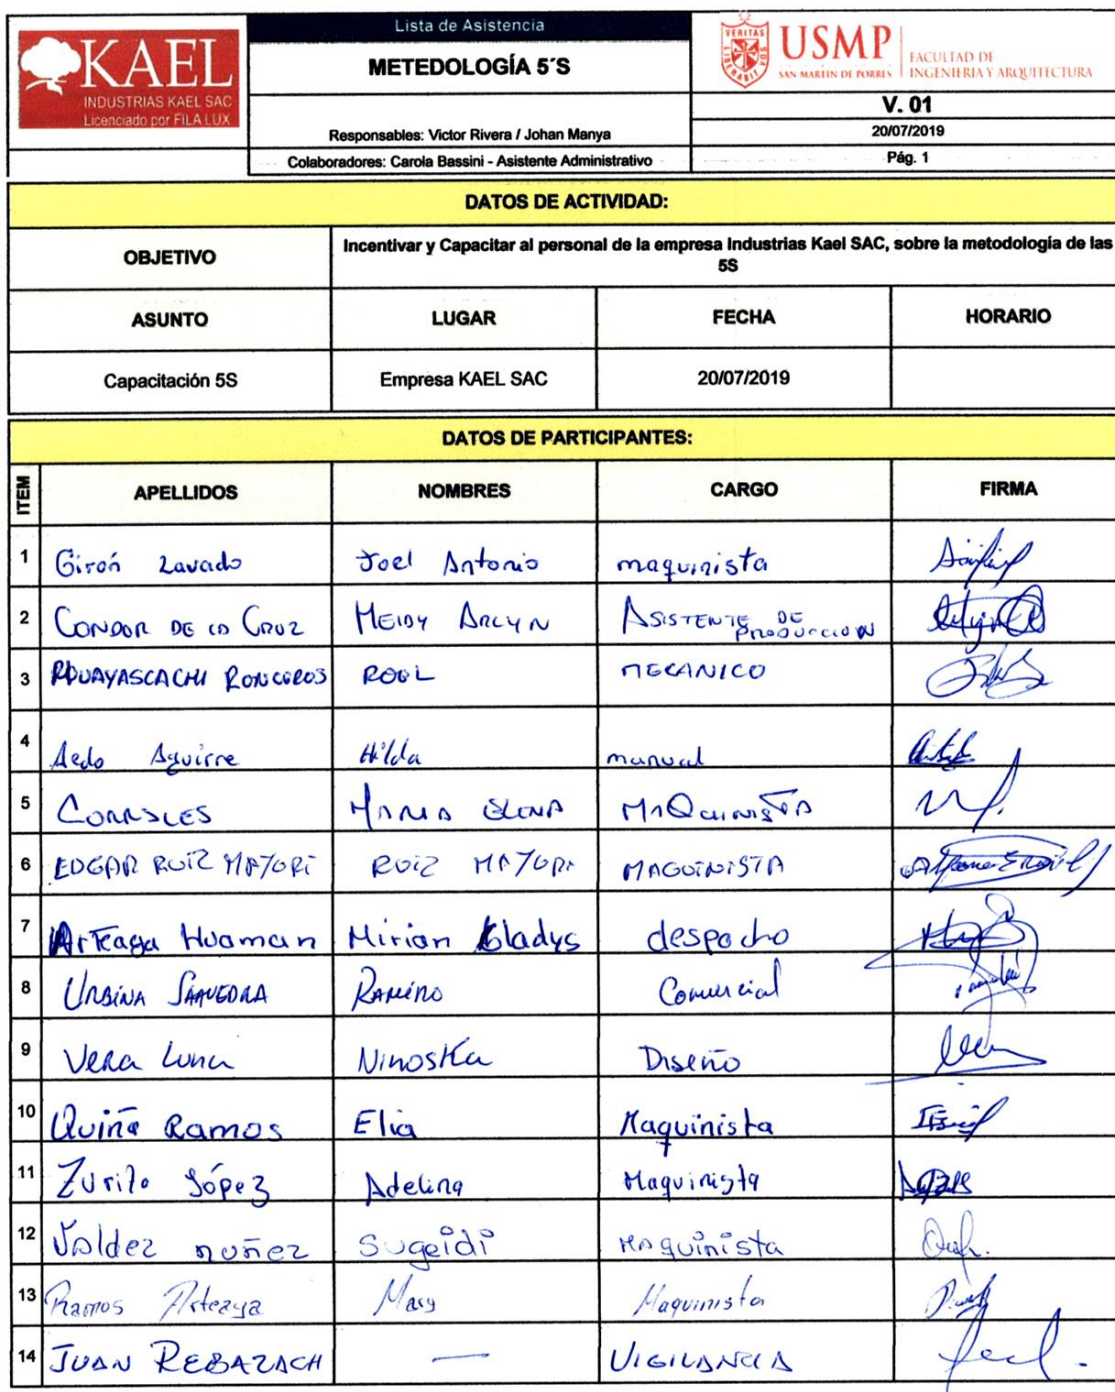 KAEL
INDUSTRIAS KAEL SAC
Licenciado por FILA LUX
Lista de Asistencia
METEDOLOGÍA 5´S
Responsables: Victor Rivera / Johan Manya
Colaboradores: Carola Bassini - Asistente Administrativo
VERITAS
LIBERABIT VOS
USMP
SAN MARTIN DE PORRES
FACULTAD DE
INGENIERIA Y ARQUITECTURA
V. 01
20/07/2019
Pág. 1
DATOS DE ACTIVIDAD:
OBJETIVO
Incentivar y Capacitar al personal de la empresa Industrias Kael SAC, sobre la metodología de las
5S
ASUNTO LUGAR FECHA HORARIO
Capacitación 5S Empresa KAEL SAC 20/07/2019
DATOS DE PARTICIPANTES:
ITEM APELLIDOS NOMBRES CARGO FIRMA
1 Girón Lavado Joel Antonio maquinista
2 CONDOR DE LA CRUZ MEIDY ARLYN ASISTENTE DE PRODUCCION
3 RONCEROS ROEL MECANICO
4 Aedo Aguirre Hilda manual
5 CORRALES MARIA ELENA MAQuinisTA
6 EDGAR RUIZ MAYORI RUIZ MAYORI MAQUINISTA
7 Arteaga Huaman Mirian Gladys despacho
8 URBINA SAAVEDRA RAMIRO Comercial
9 Vera Luna Ninoska Diseño
10 Ramos Elia Maquinista
11 López Adelina Maquinista
12 Valdez nuñez Sugeidi maquinista
13 Ramos Arteaga Mary Maquinista
14 JUAN REBAZACH — VIGILANCIA